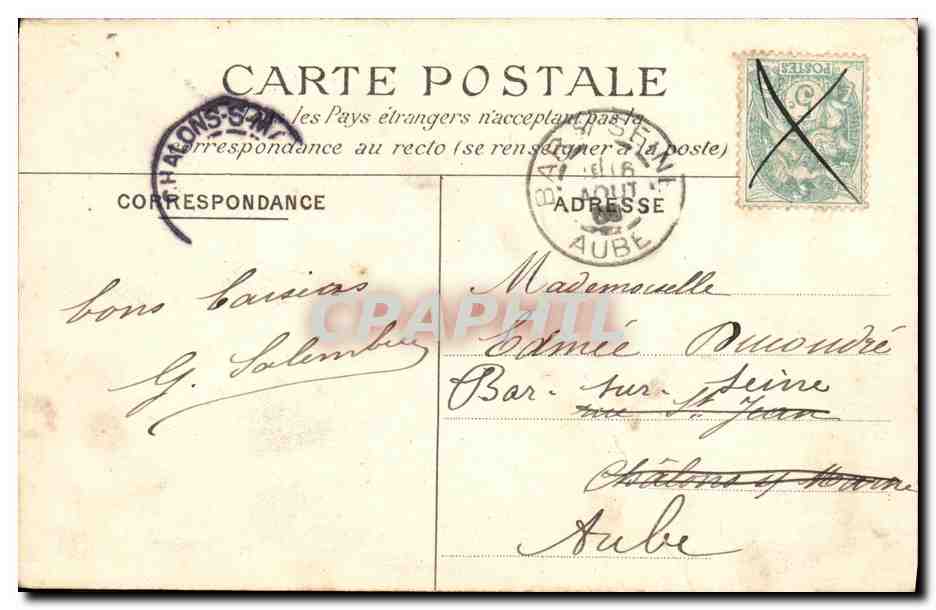 CARTE POSTALE
les Pays étrangers n'acceptant pas la
correspondance au recto (se renseigner à la poste)
CHALONS-S-M
BAR-S-SEINE
16
AOUT
AUBE
POSTES
5c
CORRESPONDANCE
ADRESSE
bons baisers
G.
Mademoiselle
Edmée
Bar-sur-Seine
rue St Jean
Châlons s/ Marne
Aube
CPAPHIL